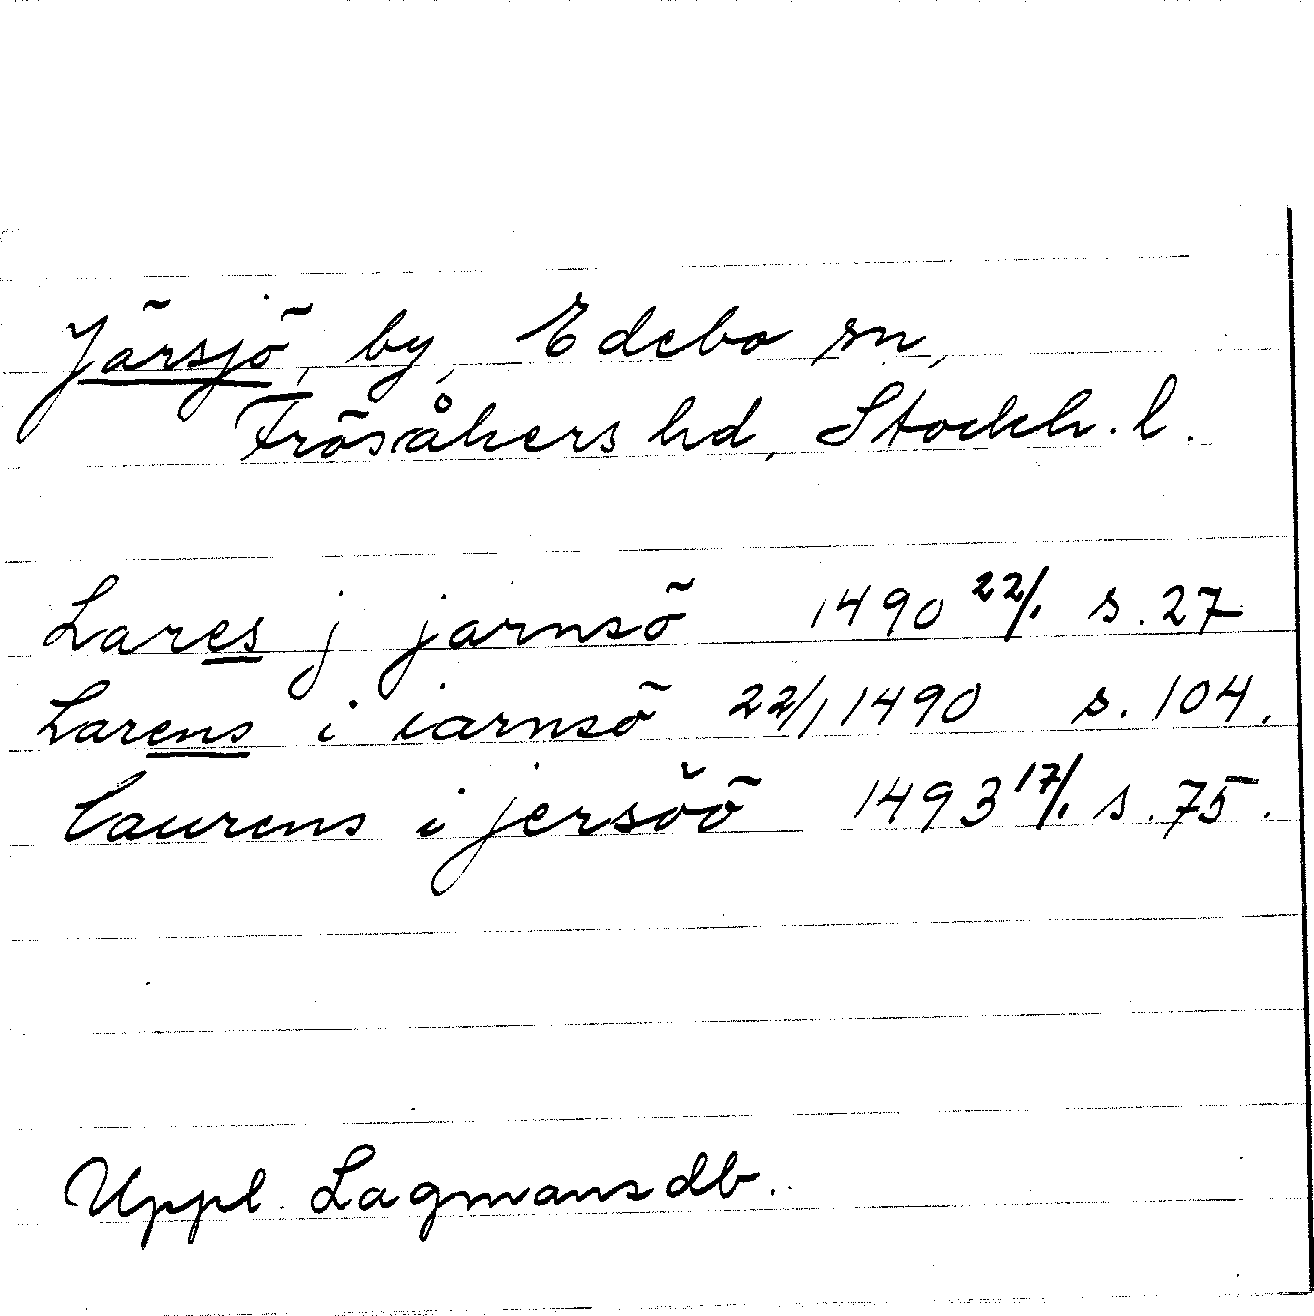 Järsjö, by, Edebo sn,
Frösåkers hd, Stockh. l.
Lares j jarnsö 1490 22/1 s. 27
Larens i iarnsö 22/1 1490 s. 104.
laurens i jersöö 1493 17/1 s. 75.
Uppl. Lagmansdb.